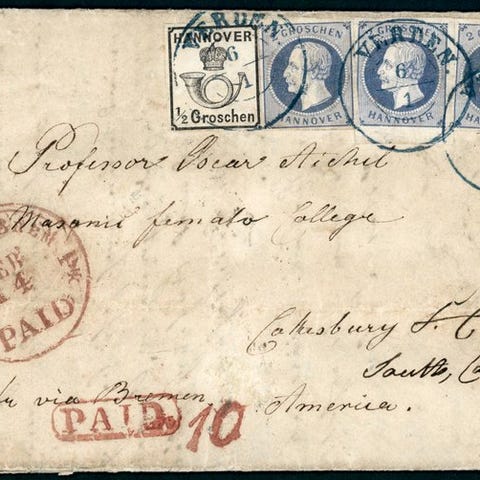 HANNOVER
½ Groschen
GROSCHEN
HANNOVER
GROSCHEN
HANNOVER
2 G
VERDEN
6
1
VERDEN
6
1
Professor Oscar
Masonic female College
Cokesbury
South, Ca
America.
via Bremen
PAID
10
Pk
14
PAID